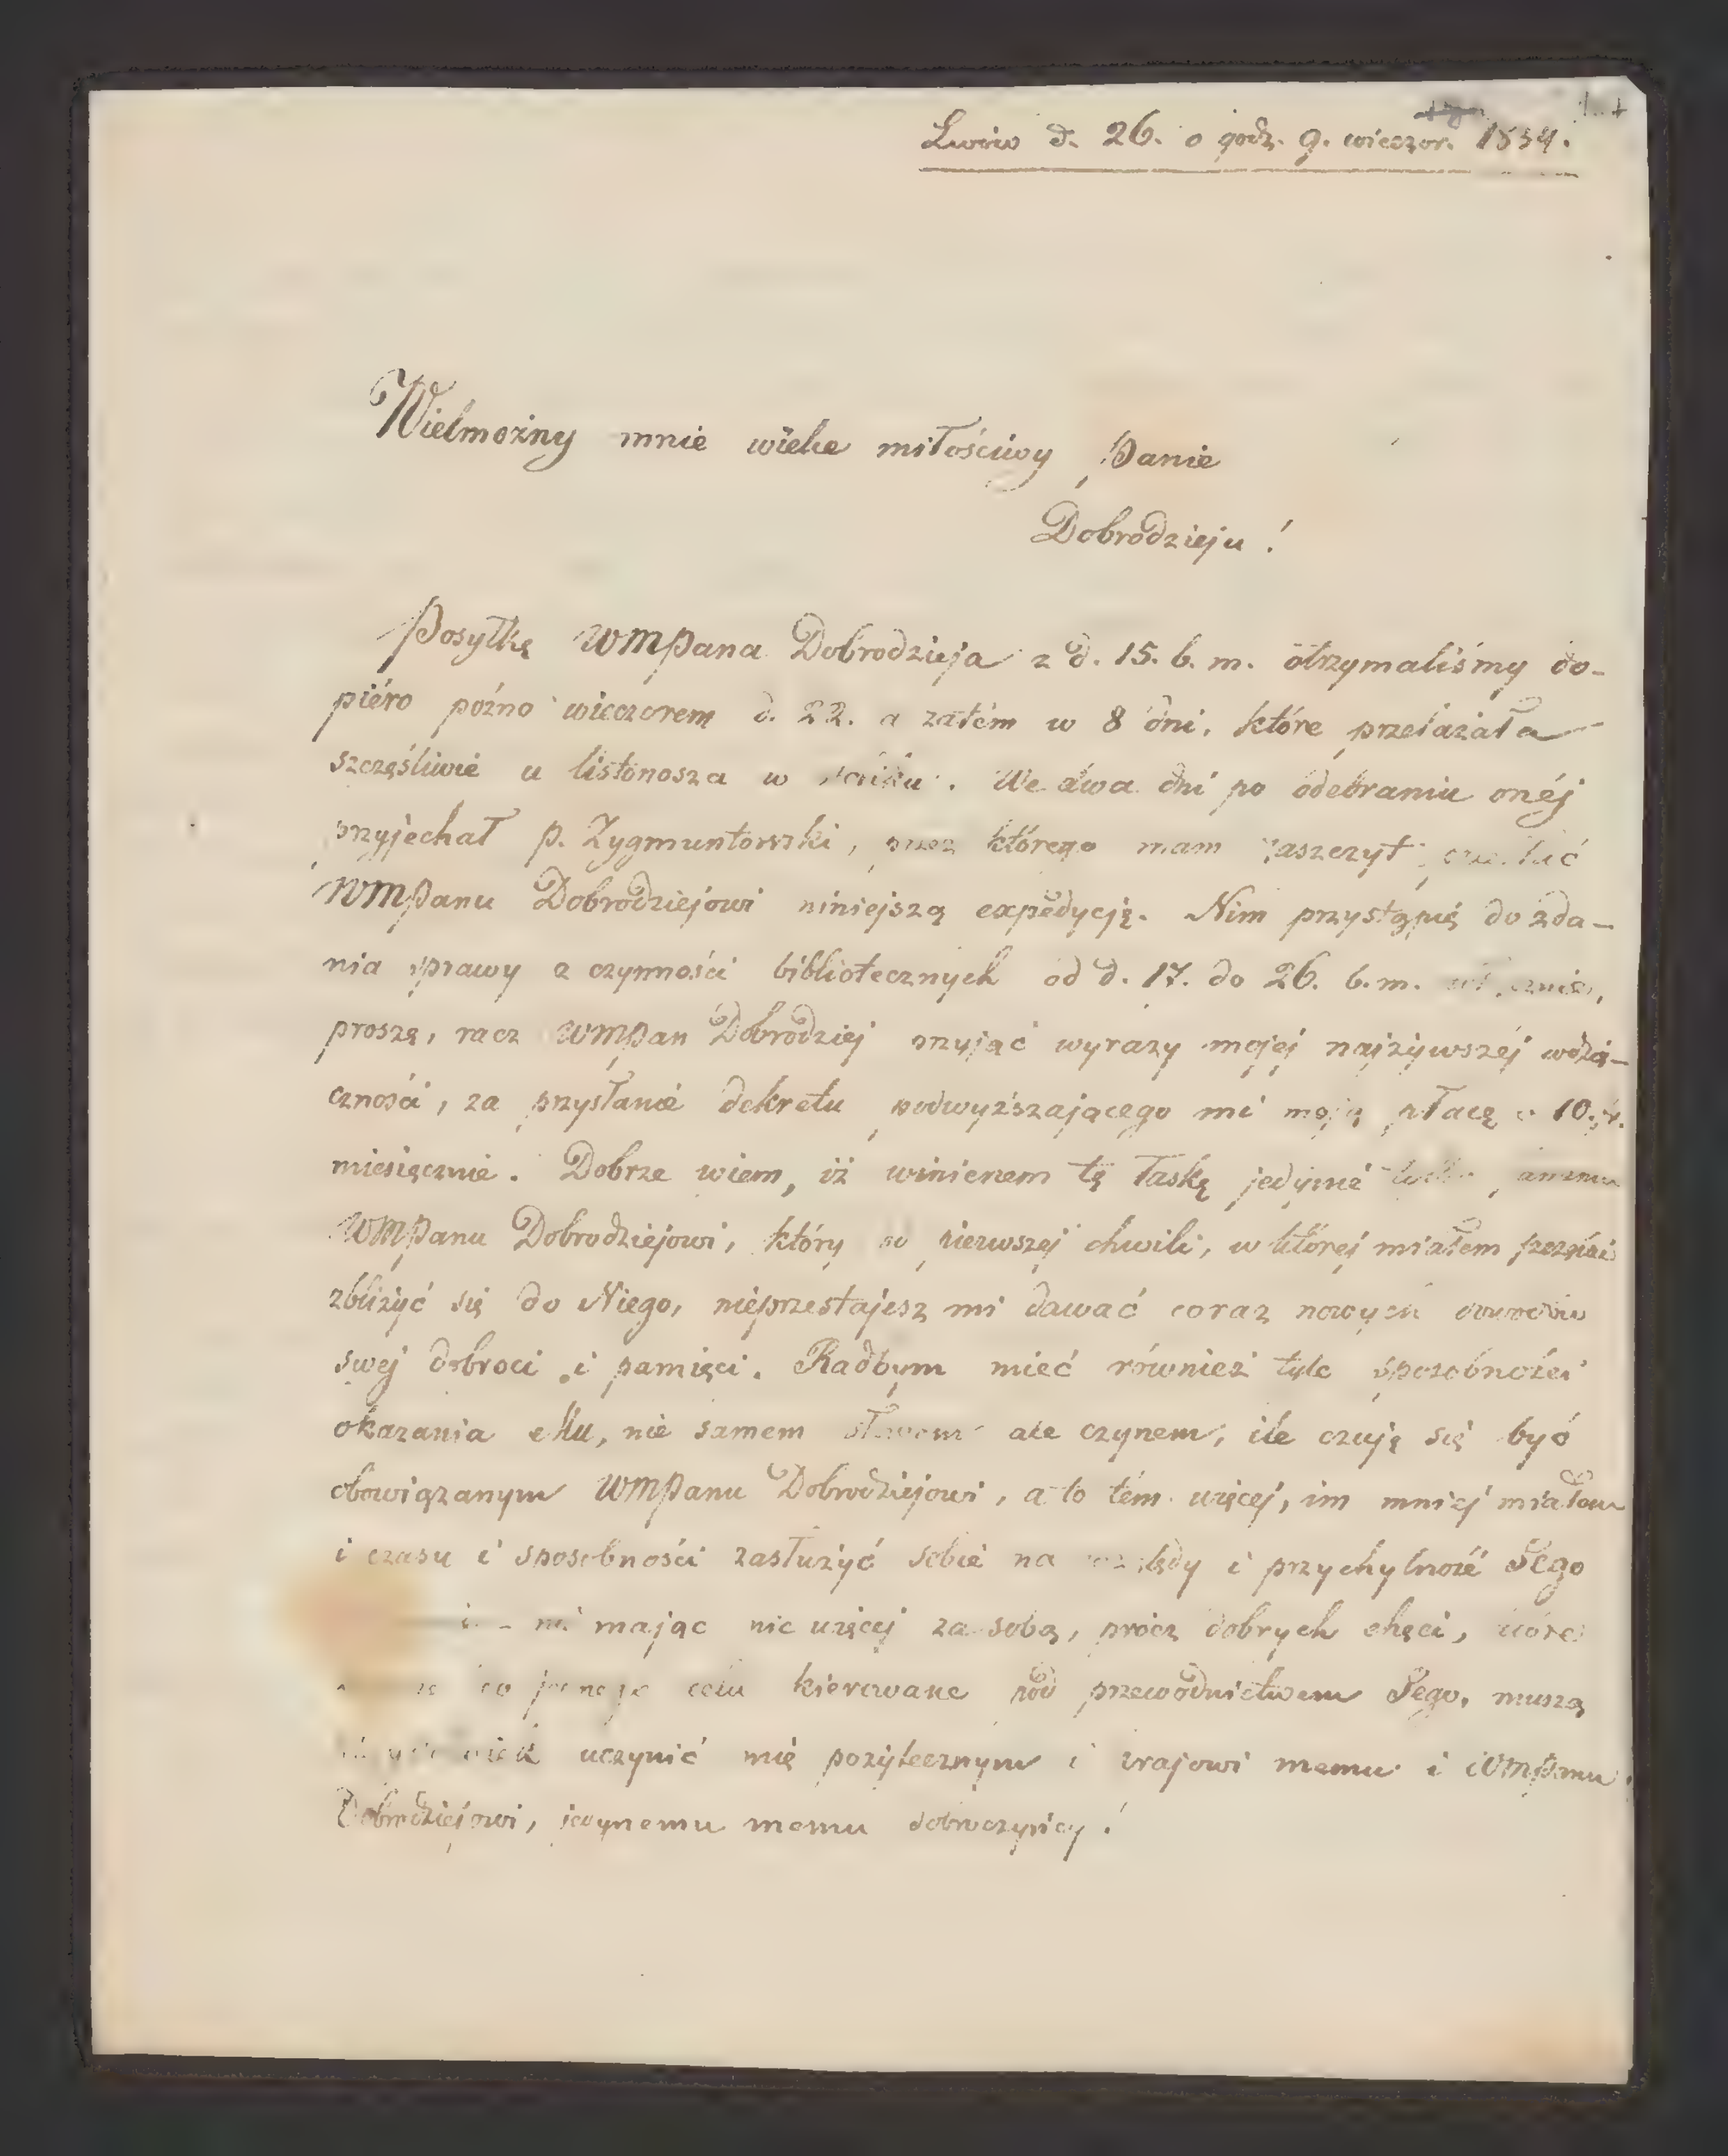 Lwów d. 26. o godz. 9. wieczor. 1834.
Wielmożny mnie wielce miłościwy Panie
Dobrodzieju!
Posyłkę WMPana Dobrodzieja z d. 15. b. m. otrzymaliśmy do-
piéro poźno wieczorem d. 22. a zatém w 8 dni, które przełażała
szczęśliwie u listonosza w. We dwa dni po odebraniu onéj
przyjechał p. Zygmuntowski, przez którego mam zaszczyt
WMPanu Dobrodziejowi niniejszą expedycję. Nim przystąpię do zda-
nia sprawy z czynności bibliotecznych od d. 17. do 26. b. m.
proszę, racz WMPan Dobrodziej przyjąć wyrazy mojéj najżywszéj wdzię-
czności, za przysłanie dekretu podwyższającego mi moją płacę o 10.
miesięcznie. Dobrze wiem, iż winienem tę łaskę jedynie
WMPanu Dobrodziejowi, który od pierwszej chwili, w któréj miałem szczęście
zbliżyć się do Niego, nieprzestajesz mi dawać coraz nowych dowodów
swej dobroci i pamięci. Radbym mieć również tyle sposobności
okazania Mu, nie samem słowem ale czynem, ile czuję się być
obowiązanym WMPanu Dobrodziejowi, a to tém więcej, im mniej miałem
i czasu i sposobności zasłużyć sobie na względy i przychylność Jego
mając nic więcej za sobą, prócz dobrych chęci, które
do jednego celu kierowane pod przewodnictwem Jego, muszą
uczynić mię pożytecznym i krajowi memu i WMPanu
Dobrodziejowi, jedynemu memu dobroczyńcy!